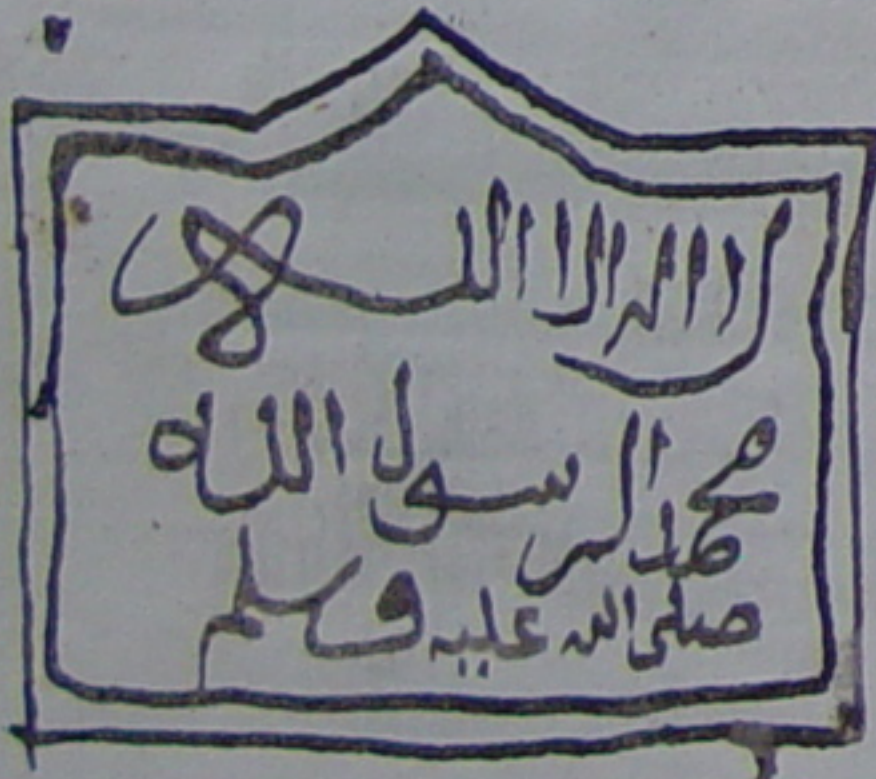 لا اله الا الله
محمد الرسول الله
صلى الله عليه وسلم